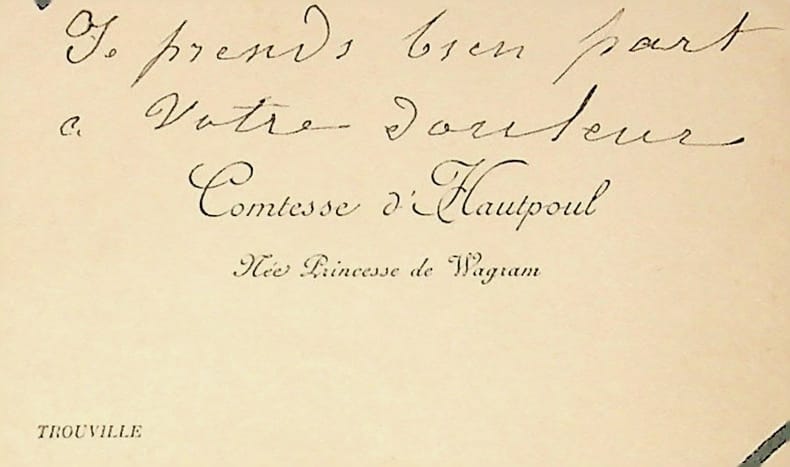 Je prends bien part
a Votre douleur
Comtesse d'Hautpoul
Née Princesse de Wagram
TROUVILLE